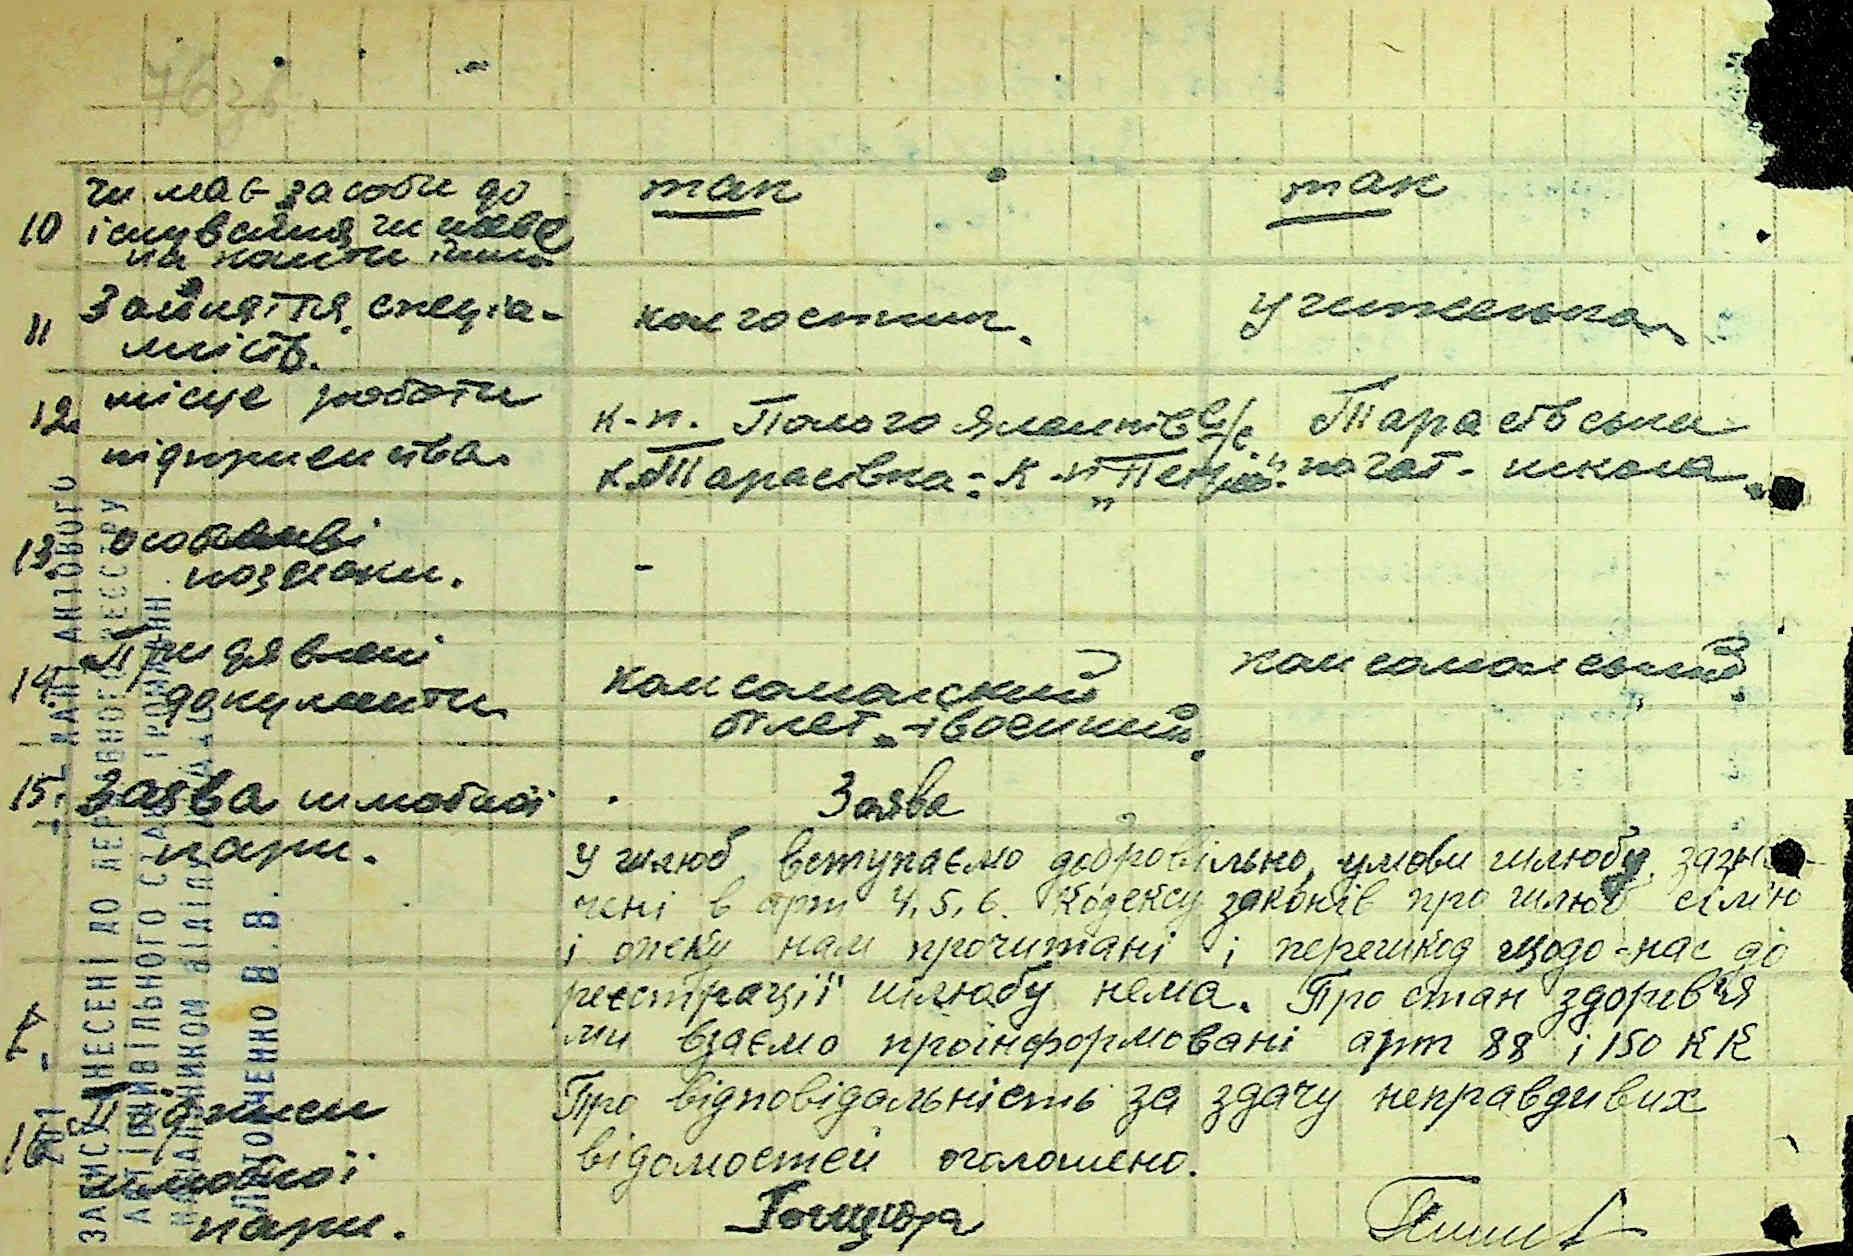 76 зв.
10 чи має засоби до існування чи має на кошти інших
так
так
11 Заняття, спеціальність.
колгоспник.
учителька.
12. місце роботи
підприємства.
к-п. Пологояланців с/с Тарасівська
х. Тарасівка: к-п початк. школа.
13. особливі
познаки.
-
14. Придявлені
документи
комсомолський
білет і воєнний.
комсомольський.
15. Заява шлюбної
пари.
Заява
У шлюб вступаємо добровільно, умови шлюбу зазна-
чені в арт 4, 5, 6. Кодексу законів про шлюб сім'ю
і опеку нам прочитані і перешкод щодо-нас до
реєстрації шлюбу нема. Про стан здоров'я
ми взаємо проінформовані арт 88 і 150 КК
Про відповідальність за здачу неправдивих
відомостей оголошено.
16. Підписи
шлюбної
пари.
Гонцюра
АКТОВОГО
ЗАПИСУ ВНЕСЕНІ ДО ДЕРЖАВНОГО РЕЄСТРУ
АКТІВ ЦИВІЛЬНОГО СТАНУ ГРОМАДЯН.
НАЧАЛЬНИКОМ ВІДДІЛУ
В.В.